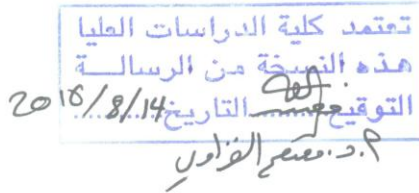 تعتمد كلية الدراسات العليا
هذه النسخة من الرسالــة
التوقيع.........التاريخ.........
2018/8/14
م.د.